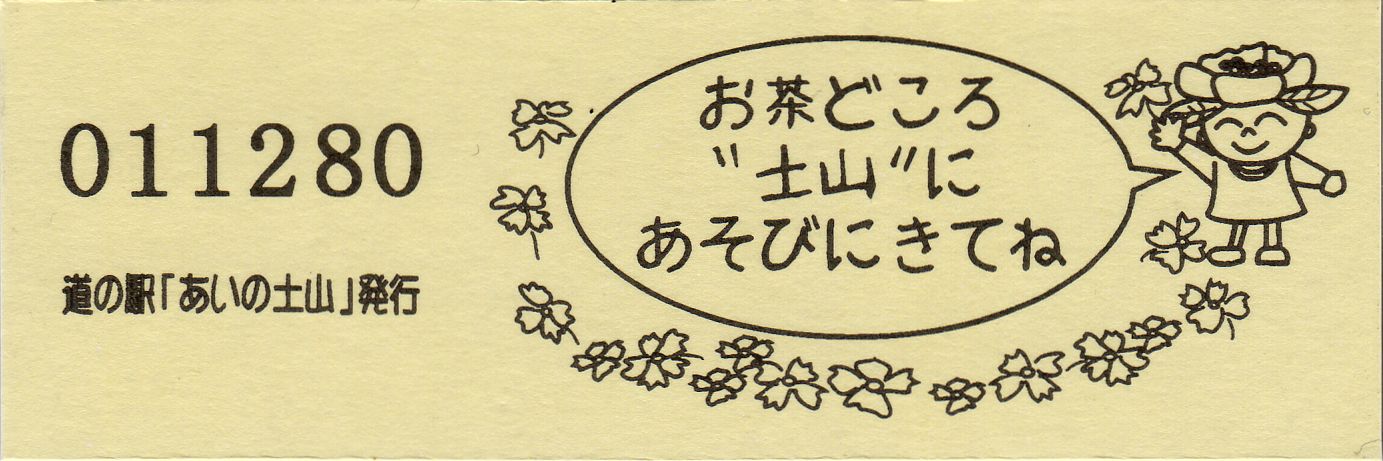 011280
道の駅「あいの土山」発行
お茶どころ
"土山"に
あそびにきてね